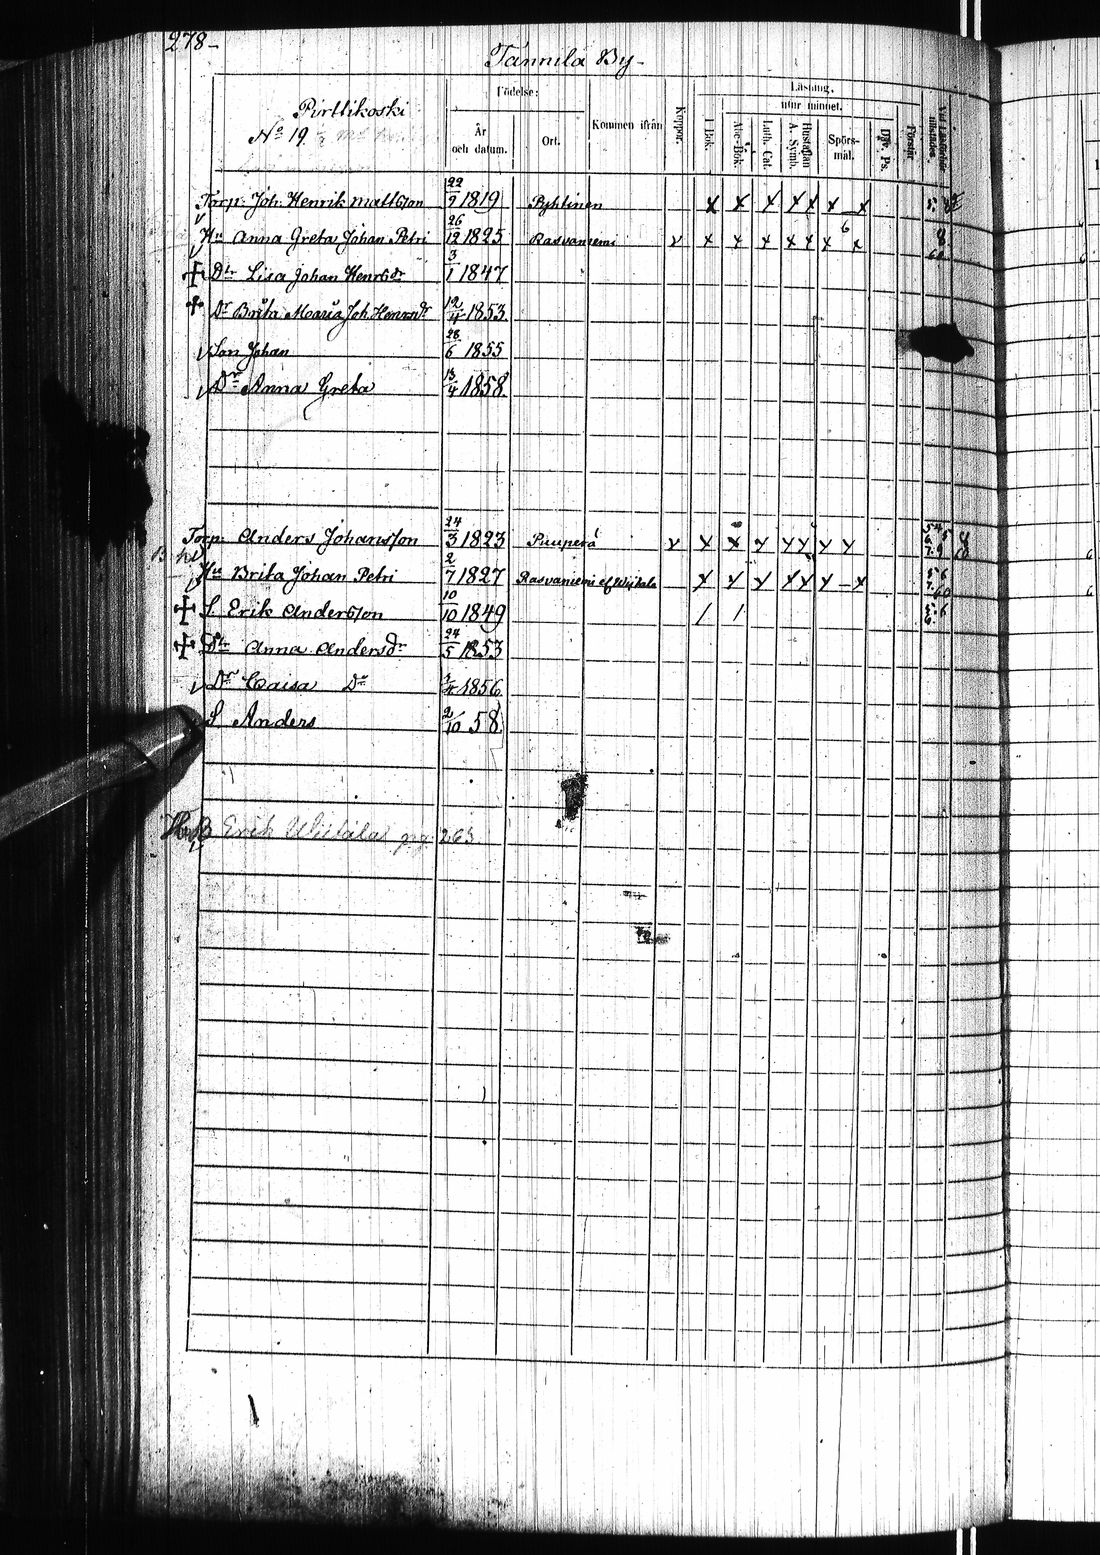 278-
Tannila By-
Pirttikoski
No 19
Födelse:
År och datum.
Ort.
Kommen ifrån
Koppor.
Läsning,
utur minnet.
I Bok.
Abc-Bok.
Luth. Cat.
Hustaflan A. Symb.
Spörs-mål.
Dav. Ps.
Förstår
Torp. Joh. Henrik Mattsson 22/9 1819 Pyhtinen x x x x x x x
Hu Anna Greta Johan Petri 26/12 1825 Rasvaniemi v x x x x x x 6 x 8 60
Dtr Lisa Johan Henrsdr 3/1 1847
Dr Brita Maria Joh. Henrsdr 12/4 1853.
Son Johan 28/6 1855
Dr Anna Greta 13/4 1858.
Torp. Anders Johansson 24/3 1823 Puuperä v x x x x x x x
Hu Brita Johan Petri 2/7 1827 Rasvaniemi x x x x x x - x
S. Erik Andersson 10/10 1849 / /
Dtr Anna Andersdr 24/5 1853
Dr Caisa Dr 1856
S Anders 2/10 58.
Erik 263.